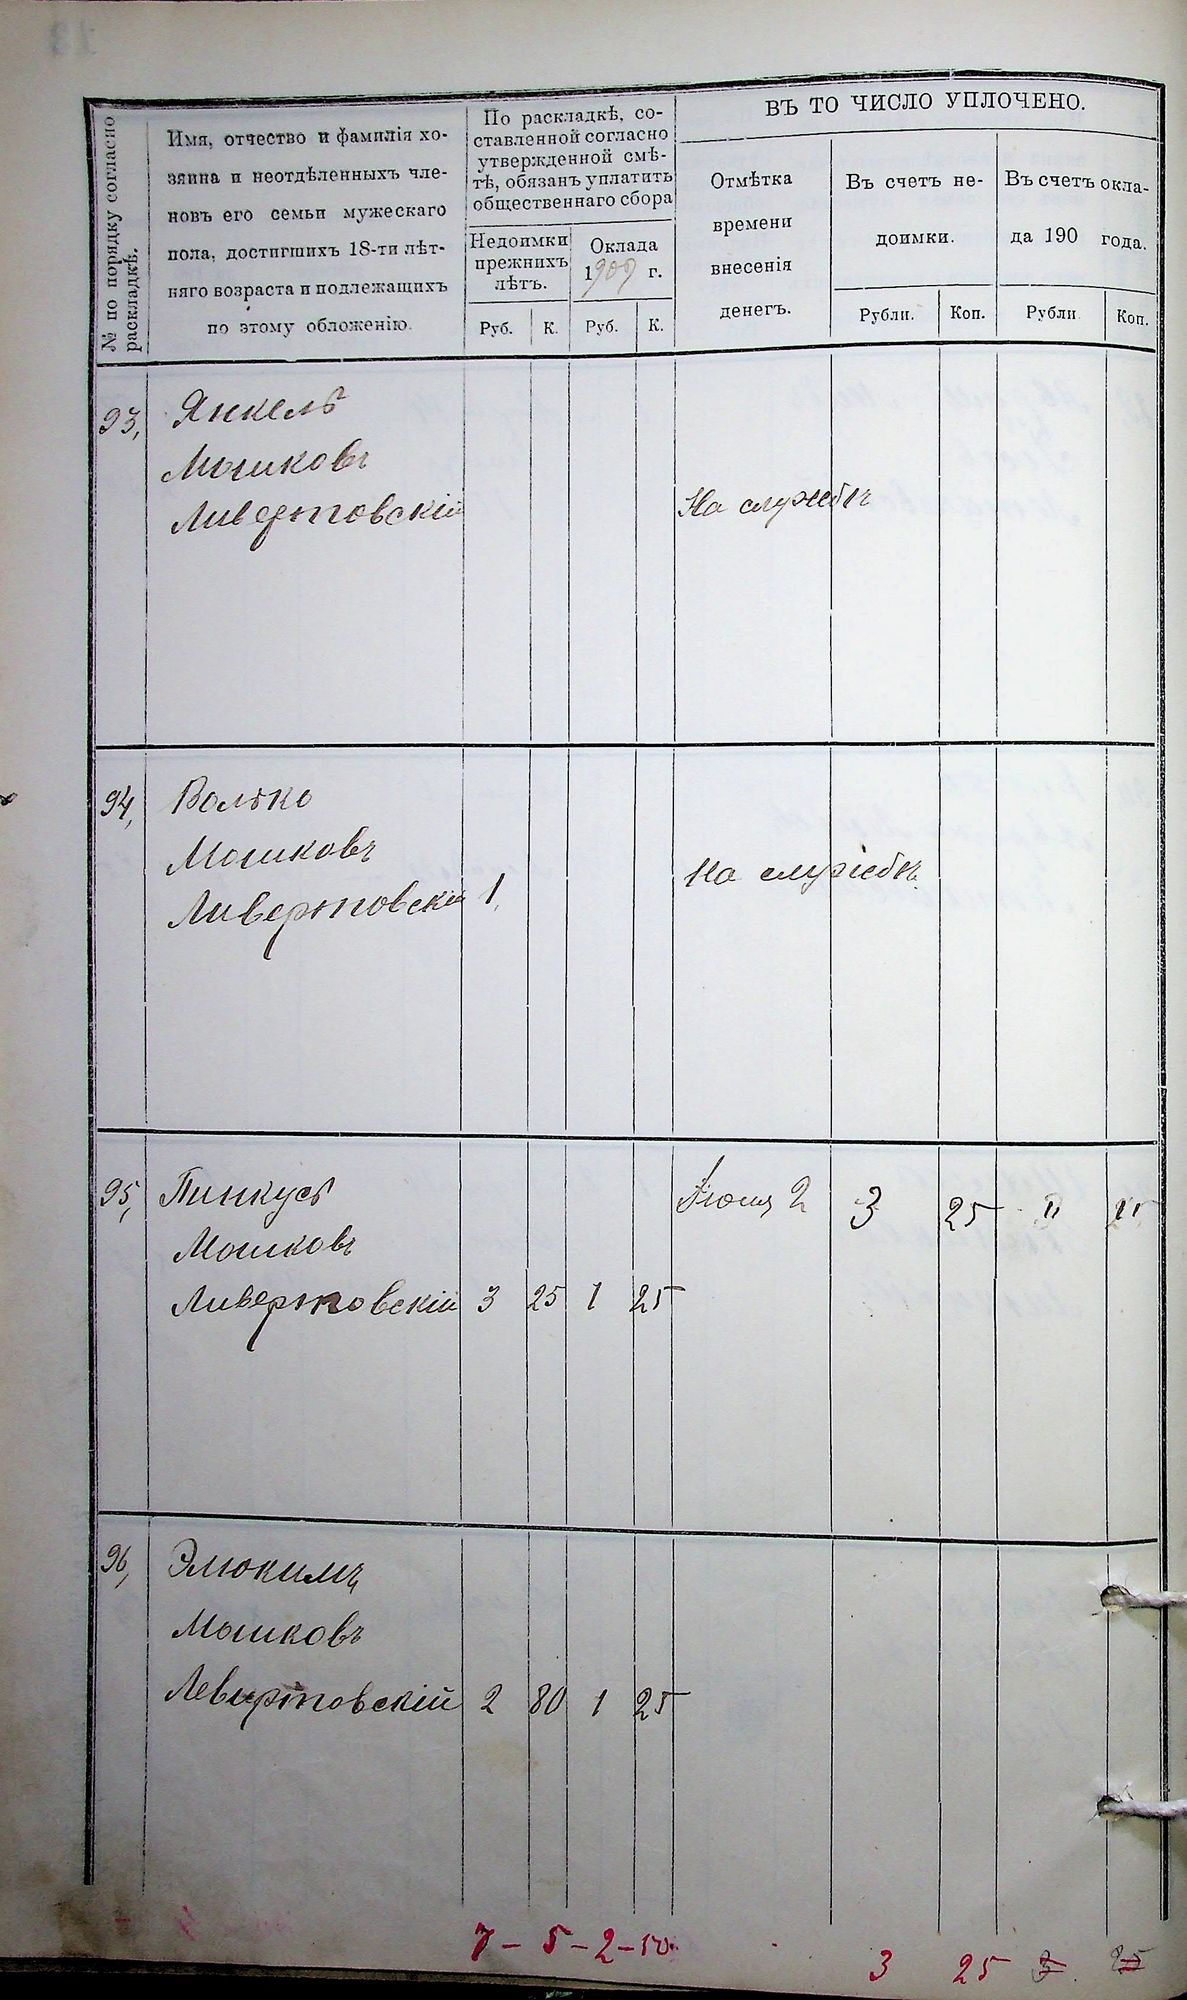 № по порядку согласно
раскладкѣ.
Имя, отчество и фамилія хо-
зяина и неотдѣленныхъ чле-
новъ его семьи мужескаго
пола, достигшихъ 18-ти лѣт-
няго возраста и подлежащихъ
по этому обложенію.
По раскладкѣ, со-
ставленной согласно
утвержденной смѣ-
тѣ, обязанъ уплатить
общественнаго сбора
Недоимки
прежнихъ
лѣтъ.
Оклада
1909 г.
Руб. К. Руб. К.
ВЪ ТО ЧИСЛО УПЛОЧЕНО.
Отмѣтка
времени
внесенія
денегъ.
Въ счетъ не-
доимки.
Въ счетъ окла-
да 190 года.
Рубли. Коп. Рубли Коп.
93, Янкель
Мошковъ
Ливертовскій На службѣ
94, Волько
Мошковъ
Ливертовскій 1, На службѣ
95, Пинкусъ Іюня 2 3 25 " "
Мошковъ
Ливертовскій 3 25 1 25
96, Элюкимъ
Мошковъ
Левертовскій 2 80 1 25
7 - 5 - 2 - 50
3 25 3 25